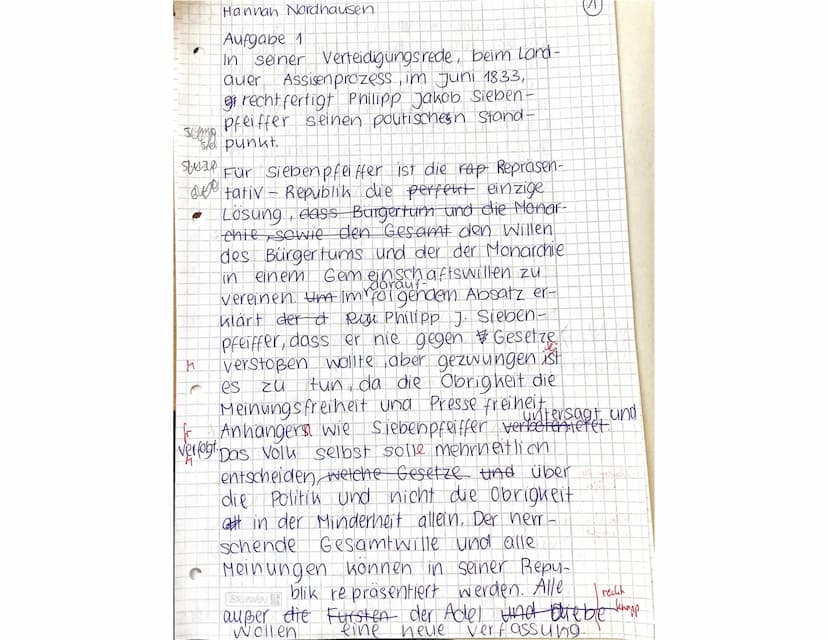 Hannah Nordhausen
1
Aufgabe 1
In seiner Verteidigungsrede, beim Land-
auer Assisenprozess, im Juni 1833,
rechtfertigt Philipp Jakob Sieben-
pfeiffer seinen politischen Stand-
punkt.
Für Siebenpfeiffer ist die rap Repräsen-
tativ-Republik die perfekt einzige
Lösung, dass Bürgertum und die Monar-
chie, sowie den Gesamt den Willen
des Bürgertums und der der Monarchie
in einem Gemeinschaftswillen zu
vereinen. Um Im darauf-
folgendem Absatz er-
klärt der d Philipp J. Sieben-
pfeiffer, dass er nie gegen Gesetze
verstoßen wollte, aber gezwungen ist
es zu tun, da die Obrigkeit die
Meinungsfreiheit und Pressefreiheit
untersagt und
Anhänger wie Siebenpfeiffer
verfolgt. Das Volk selbst solle mehrheitlich
entscheiden, welche Gesetze und über
die Politik und nicht die Obrigkeit
in der Minderheit allein. Der herr-
schende Gesamtwille und alle
Meinungen können in seiner Repu-
blik repräsentiert werden. Alle
außer die Fürsten der Adel und
wollen eine neue Verfassung.
recht
knapp